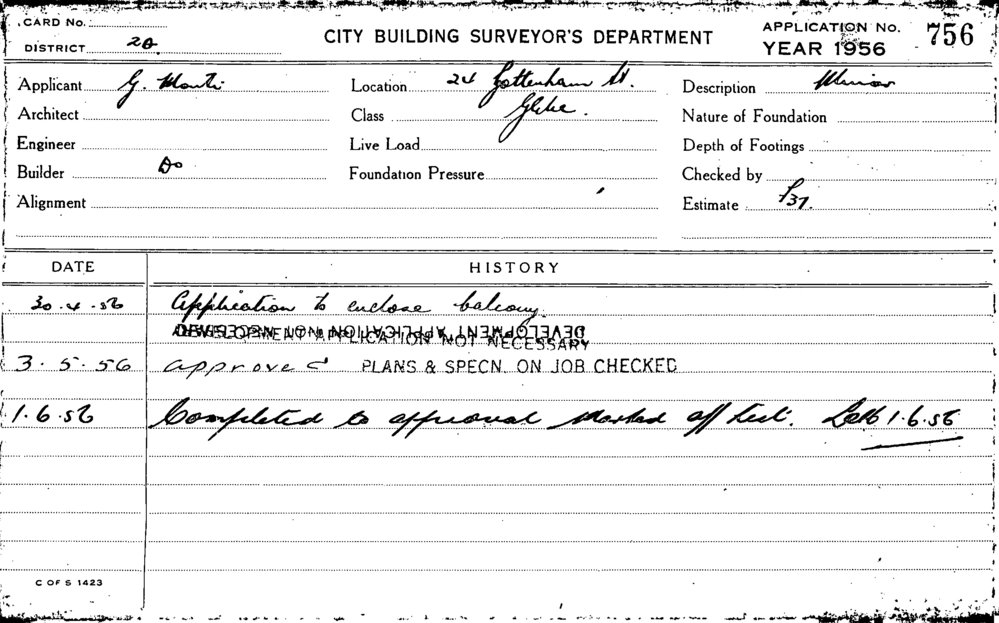 CARD No.
DISTRICT 20
CITY BUILDING SURVEYOR'S DEPARTMENT
APPLICATION No. 756
YEAR 1956
Applicant G. Monti Location 24 Gottenham St. Description Minor
Architect Class Glebe. Nature of Foundation
Engineer Live Load Depth of Footings
Builder Do Foundation Pressure Checked by
Alignment Estimate £37.
DATE HISTORY
30.4.56 Application to enclose balcony.
DEVELOPMENT APPLICATION NOT NECESSARY
DEVELOPMENT APPLICATION NOT NECESSARY
3.5.56 approved PLANS & SPECN. ON JOB CHECKED
1.6.56 Completed to approval marked off list. 1.6.56
C OF S 1423